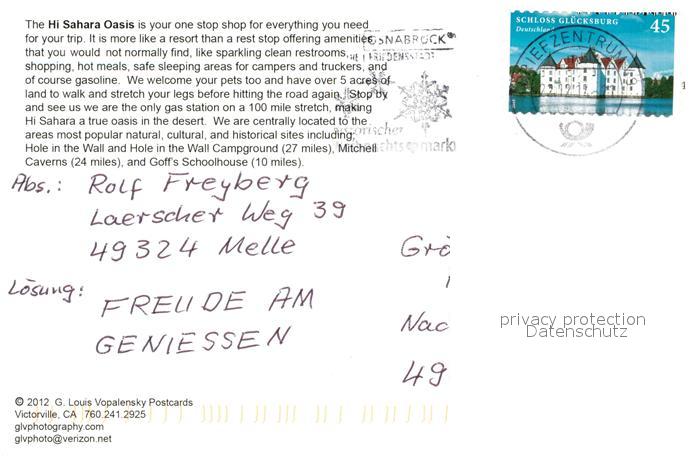 The Hi Sahara Oasis is your one stop shop for everything you need
for your trip. It is more like a resort than a rest stop offering amenities
that you would not normally find, like sparkling clean restrooms,
shopping, hot meals, safe sleeping areas for campers and truckers, and
of course gasoline. We welcome your pets too and have over 5 acres of
land to walk and stretch your legs before hitting the road again. Stop by
and see us we are the only gas station on a 100 mile stretch, making
Hi Sahara a true oasis in the desert. We are centrally located to the
areas most popular natural, cultural, and historical sites including;
Hole in the Wall and Hole in the Wall Campground (27 miles), Mitchell
Caverns (24 miles), and Goff's Schoolhouse (10 miles).
OSNABRÜCK
FRIEDENSSTADT
SCHLOSS GLÜCKSBURG 45
Deutschland
BRIEFZENTRUM
Abs.: Rolf Freyberg
Laerscher Weg 39
49324 Melle
Lösung: FREUDE AM
GENIESSEN
Grö
Nac
49
privacy protection
Datenschutz
© 2012 G. Louis Vopalensky Postcards
Victorville, CA 760.241.2925
glvphotography.com
glvphoto@verizon.net